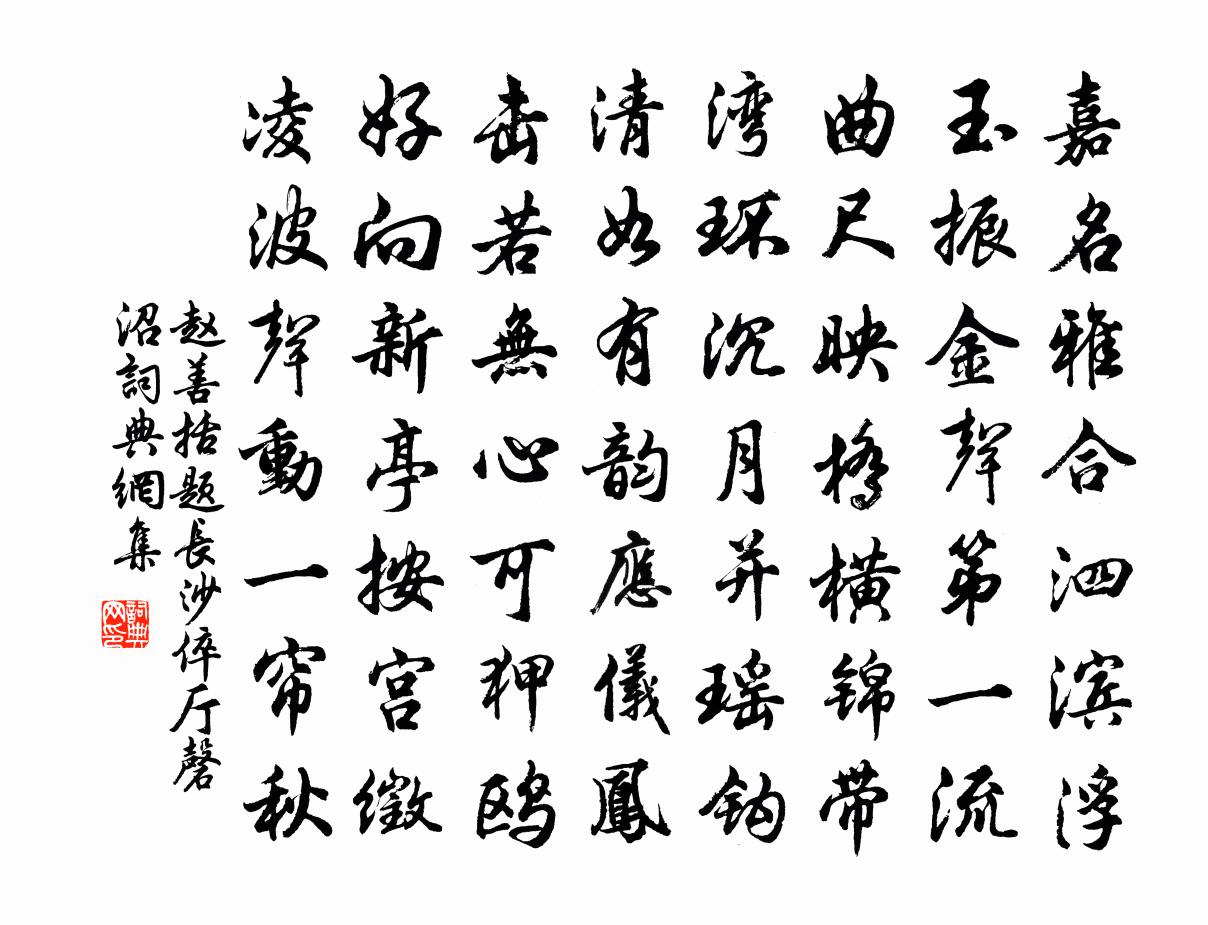 嘉名雅合泗滨浮
玉振金聲第一流
曲尺映橋橫锦带
湾环沉月并瑶钩
清如有韵應儀鳳
击若無心可狎鸥
好向新亭按宫徵
凌波聲動一帘秋
赵善括题長沙倅厅磬
沼詞典網集
詞典
网印